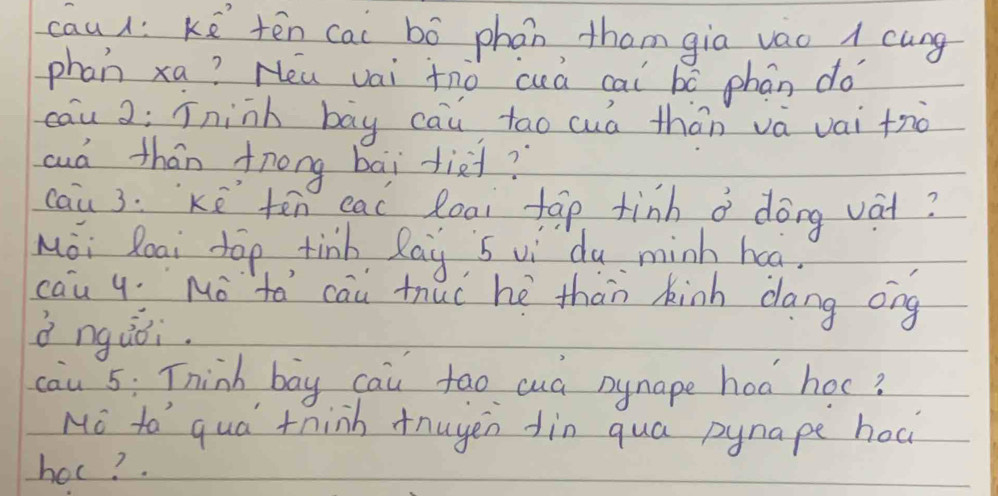 câu 1: Kể tên các bộ phận tham gia vào 1 cung
phản xạ? Nêu vai trò của các bộ phận đó
câu 2: Trình bày cấu tạo của thận và vai trò
của thận trong bài tiết?
câu 3: Kể tên các loại tập tính ở động vật?
Mỗi loại tập tính lấy 5 ví dụ minh họa.
câu 4: Mô tả cấu trúc hệ thần kinh dạng ống
ở người.
câu 5: Trình bày cấu tạo của synape hoá học?
Mô tả quá trình truyền tin qua synape hoá
học?.